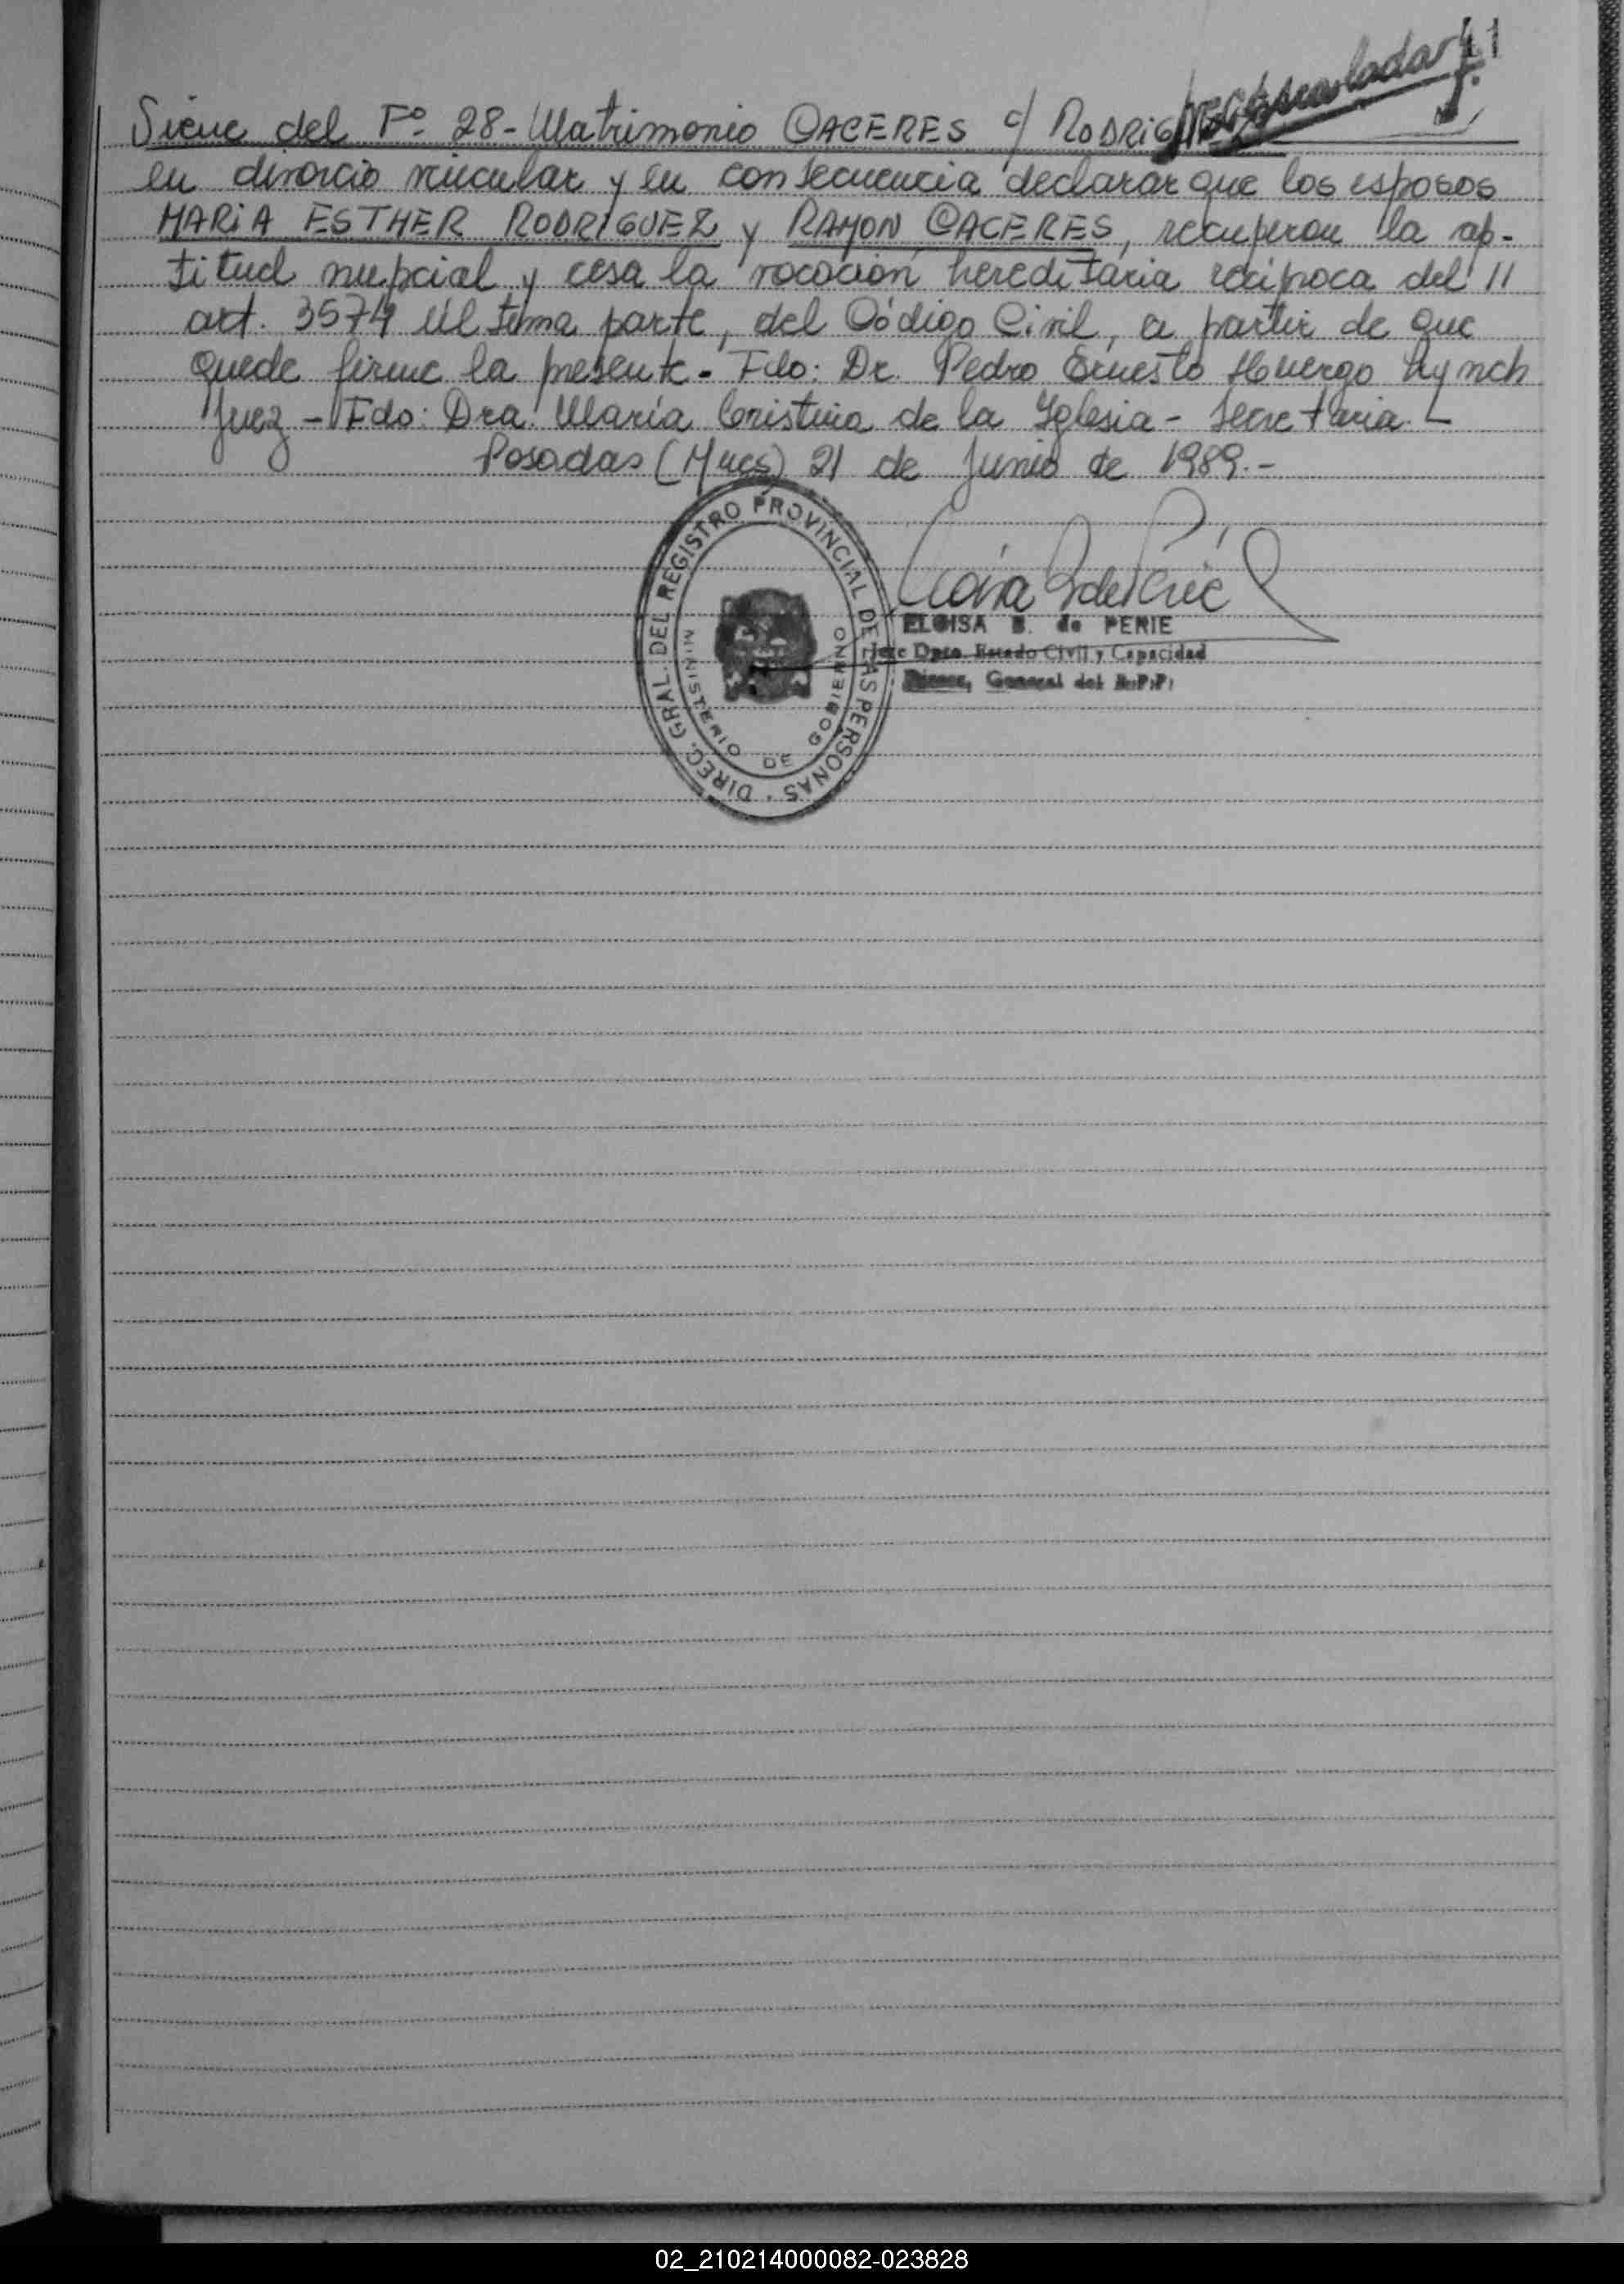 41
Siene del Fº 28 - Matrimonio CACERES c/ RODRIG
en divorcio vincular y en consecuencia declarar que los esposos
MARiA ESTHER RODRIGUEZ y RAMON CACERES, recuperan la ap-
titud nupcial y cesa la vocación hereditaria recíproca del
art. 3574 última parte, del Código Civil, a partir de que
quede firme la presente. Fdo: Dr. Pedro Ernesto Huergo Lynch
Juez - Fdo: Dra. María Cristina de la Iglesia - Secretaria.
Posadas (Mnes) 21 de Junio de 1989.-
DIREC. GRAL. DEL REGISTRO PROVINCIAL DE LAS PERSONAS
MINISTERIO DE GOBIERNO
ELOISA B. de PERIE
Jefe Dpto. Estado Civil y Capacidad
General del R.P.P.
02_210214000082-023828